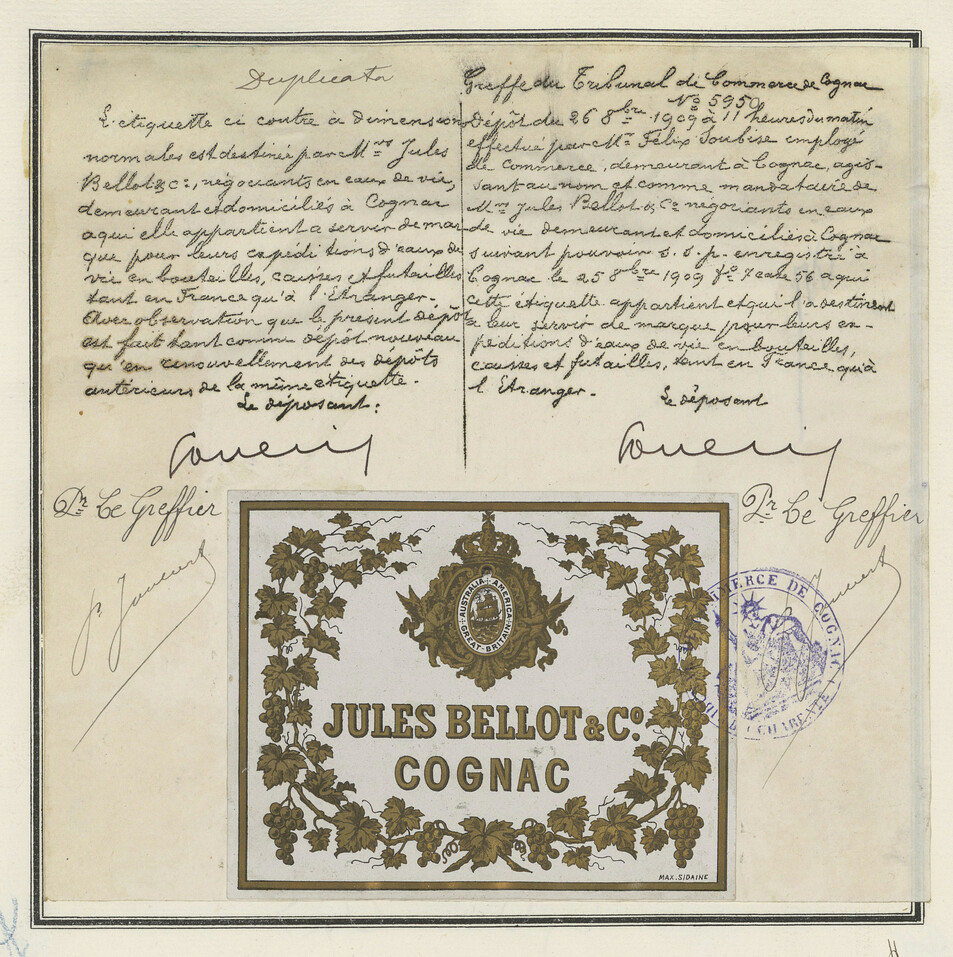 Duplicata
L'étiquette ci contre à dimensions
normales est destinée par Mrs Jules
Bellot & Cie, négociants en eaux de vie,
demeurant et domiciliés à Cognac
a qui elle appartient a servir de mar-
que pour leurs expéditions d'eaux de
vie en bouteilles, caisses et futailles
tant en France qu'à l'Etranger.
Avec observation que le présent dépôt
est fait tant comme dépôt nouveau
qu'en renouvellement des dépôts
antérieurs de la même étiquette.
Le déposant:
Pr Le Greffier
Greffe du Tribunal de Commerce de Cognac
No 5950
Dépôt du 26 8bre 1909 à 11 heures du matin
effectué par Mr Félix Soubise employé
de Commerce, demeurant à Cognac, agis-
sant au nom et comme mandataire de
Mrs Jules Bellot & Co négociants en eaux
de vie demeurant et domiciliés à Cognac
suivant pouvoir s.s.p. enregistré à
Cognac le 25 8bre 1909 fo 7 case 56 a qui
cette étiquette appartient et qui l'a destinent
a leur servir de marque pour leurs ex-
péditions d'eaux de vie en bouteilles,
caisses et futailles, tant en France qu'à
l'Etranger.
Le déposant
Pr Le Greffier
AUSTRALIA AMERICA
GREAT-BRITAIN
JULES BELLOT & Co.
COGNAC
MAX.SIDAINE
MERCE DE COGNAC
CHARENTE